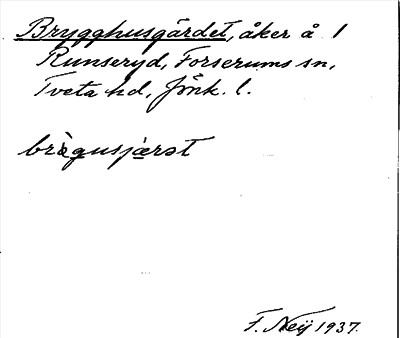 Brygghusgärdet, åker å 1
Runseryd, Forserums sn,
Tveta hd, Jönk. l.
brὰgusjærət
F. Neij 1937.